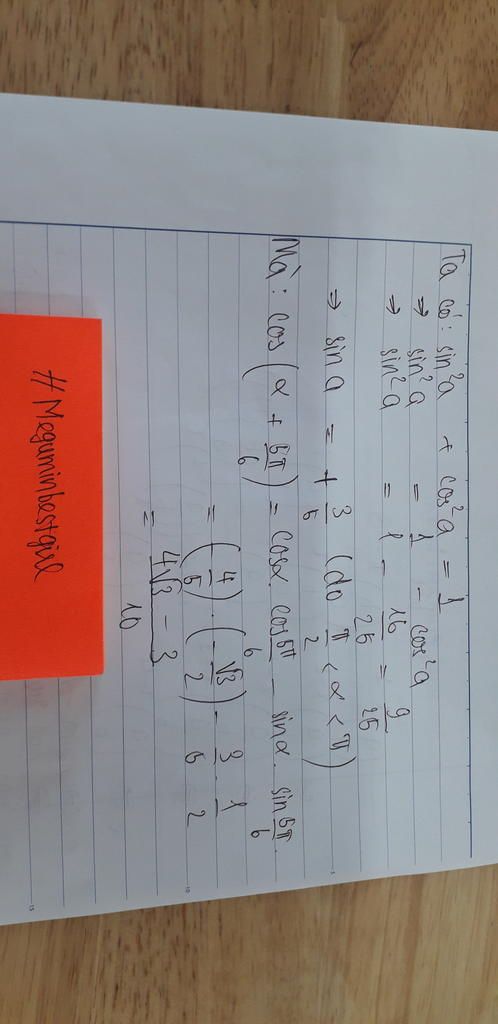 Ta có: sin²a + cos²a = 1
⇒ sin²a = 1 - cos²a
⇒ sin²a = 1 - 16/25 = 9/25
⇒ sin a = + 3/5 (do π/2 < α < π)
Mà: cos(α + 5π/6) = cosα. cos 5π/6 - sinα. sin 5π/6.
= (-4/5) . (-√3/2) - 3/5 . 1/2
= (4√3 - 3)/10
#Meguminbestgirl
5
10
15